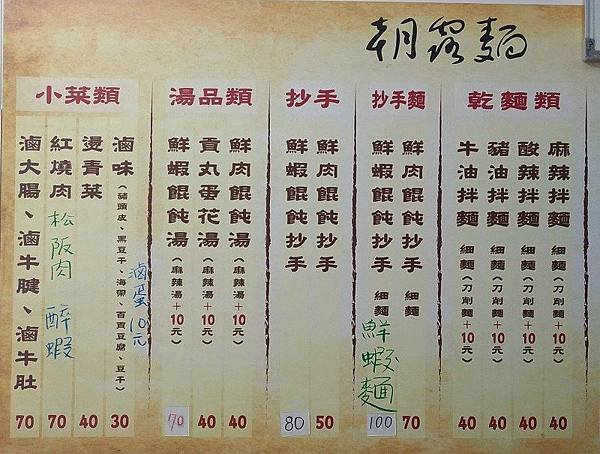 朝露麵
乾麵類
麻辣拌麵 細麵(刀削麵+10元) 40
酸辣拌麵 細麵(刀削麵+10元) 40
豬油拌麵 細麵(刀削麵+10元) 40
牛油拌麵 細麵(刀削麵+10元) 40
抄手麵
鮮肉餛飩抄手 細麵 70
鮮蝦餛飩抄手 細麵 100
鮮蝦麵
抄手
鮮肉餛飩抄手 50
鮮蝦餛飩抄手 80
湯品類
鮮肉餛飩湯(麻辣湯+10元) 40
貢丸蛋花湯(麻辣湯+10元) 40
鮮蝦餛飩湯(麻辣湯+10元) 70
小菜類
滷蛋10元
滷味(豬頭皮、黑豆干、海帶、百頁豆腐、豆干) 30
燙青菜 40
紅燒肉 松阪肉 醉蝦 70
滷大腸、滷牛腱、滷牛肚 70